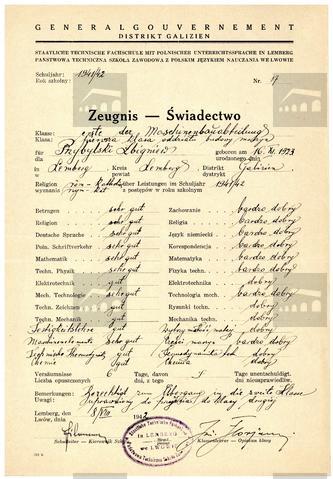 GENERALGOUVERNEMENT
DISTRIKT GALIZIEN
STAATLICHE TECHNISCHE FACHSCHULE MIT POLNISCHER UNTERRICHTSSPRACHE IN LEMBERG
PAŃSTWOWA TECHNICZNA SZKOŁA ZAWODOWA Z POLSKIM JĘZYKIEM NAUCZANIA WE LWOWIE
Schuljahr: 1941/42
Rok szkolny: Nr. 17
Zeugnis — Świadectwo
Klasse: erste der Maschinenbauabteilung
Klasa: pierwsza klasa oddziału budowy maszyn
für Przybylski Zbigniew geboren am 16. XI. 1923
dla urodzonego dnia
in Lemberg, Kreis Lemberg, Distrikt Galizien
w powiat dystrykt
Religion röm.-kath. über Leistungen im Schuljahr 1941/42
wyznania rzym.-kat. o postępów w roku szkolnym
Betragen sehr gut Zachowanie bardzo dobry
Religion sehr gut Religia bardzo dobry
Deutsche Sprache sehr gut Język niemiecki bardzo dobry
Poln. Schriftverkehr sehr gut Korespondencja bardzo dobry
Mathematik sehr gut Matematyka bardzo dobry
Techn. Physik sehr gut Fizyka techn. bardzo dobry
Elektrotechnik gut Elektrotechnika dobry
Mech. Technologie sehr gut Technologia mech. bardzo dobry
Techn. Zeichnen gut Rysunki techn. dobry
Techn. Mechanik gut Mechanika techn. dobry
Festigkeitslehre sehr gut bardzo dobry
Maschinenelemente sehr gut Części maszyn bardzo dobry
gut dobry
Chemie Chemia
Versäumnisse 6 Tage, davon Tage unentschuldigt.
Liczba opuszczonych dni, z tego dni nieusprawiedliw.
Bemerkungen: Berechtigt zum Übergang in die zweite Klasse
Uwagi: do klasy drugiej
Lemberg, den
Lwów, dnia 8/VIII 1942
Schulleiter — Kierownik Klassenlehrer — Opiekun klasy
Staatliche Technische
in LEMBERG
we LWOWIE